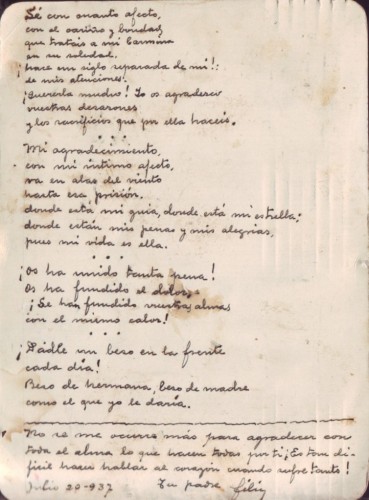 Sé con cuanto afecto,
con el cariño y bondad,
que tratais a mi Carmina
en su soledad.
¡hace un siglo separada de mi!:
de mis atenciones!.
¡Quererla mucho! Yo os agradezco
vuestros desazones
y los sacrificios que por ella haceis.
Mi agradecimiento,
con mi íntimo afecto,
va en alas del viento
hasta esa prisión.
donde está mi guia, donde está mi estrella;
donde están mis penas y mis alegrias,
pues mi vida es ella.
¡Os ha unido tanta pena!
Os ha fundido el dolor;
¡Se han fundido vuestras almas
con el mismo calor!
¡Dadle un beso en la frente
cada día!
Beso de hermana, beso de madre
como el que yo le daría.
No se me ocurre más para agradecer con
toda el alma lo que hacen todas por ti ¡Es tan di-
ficil hacer hablar al corazón cuando sufre tanto!
Julio 20-937 Tu padre Félix